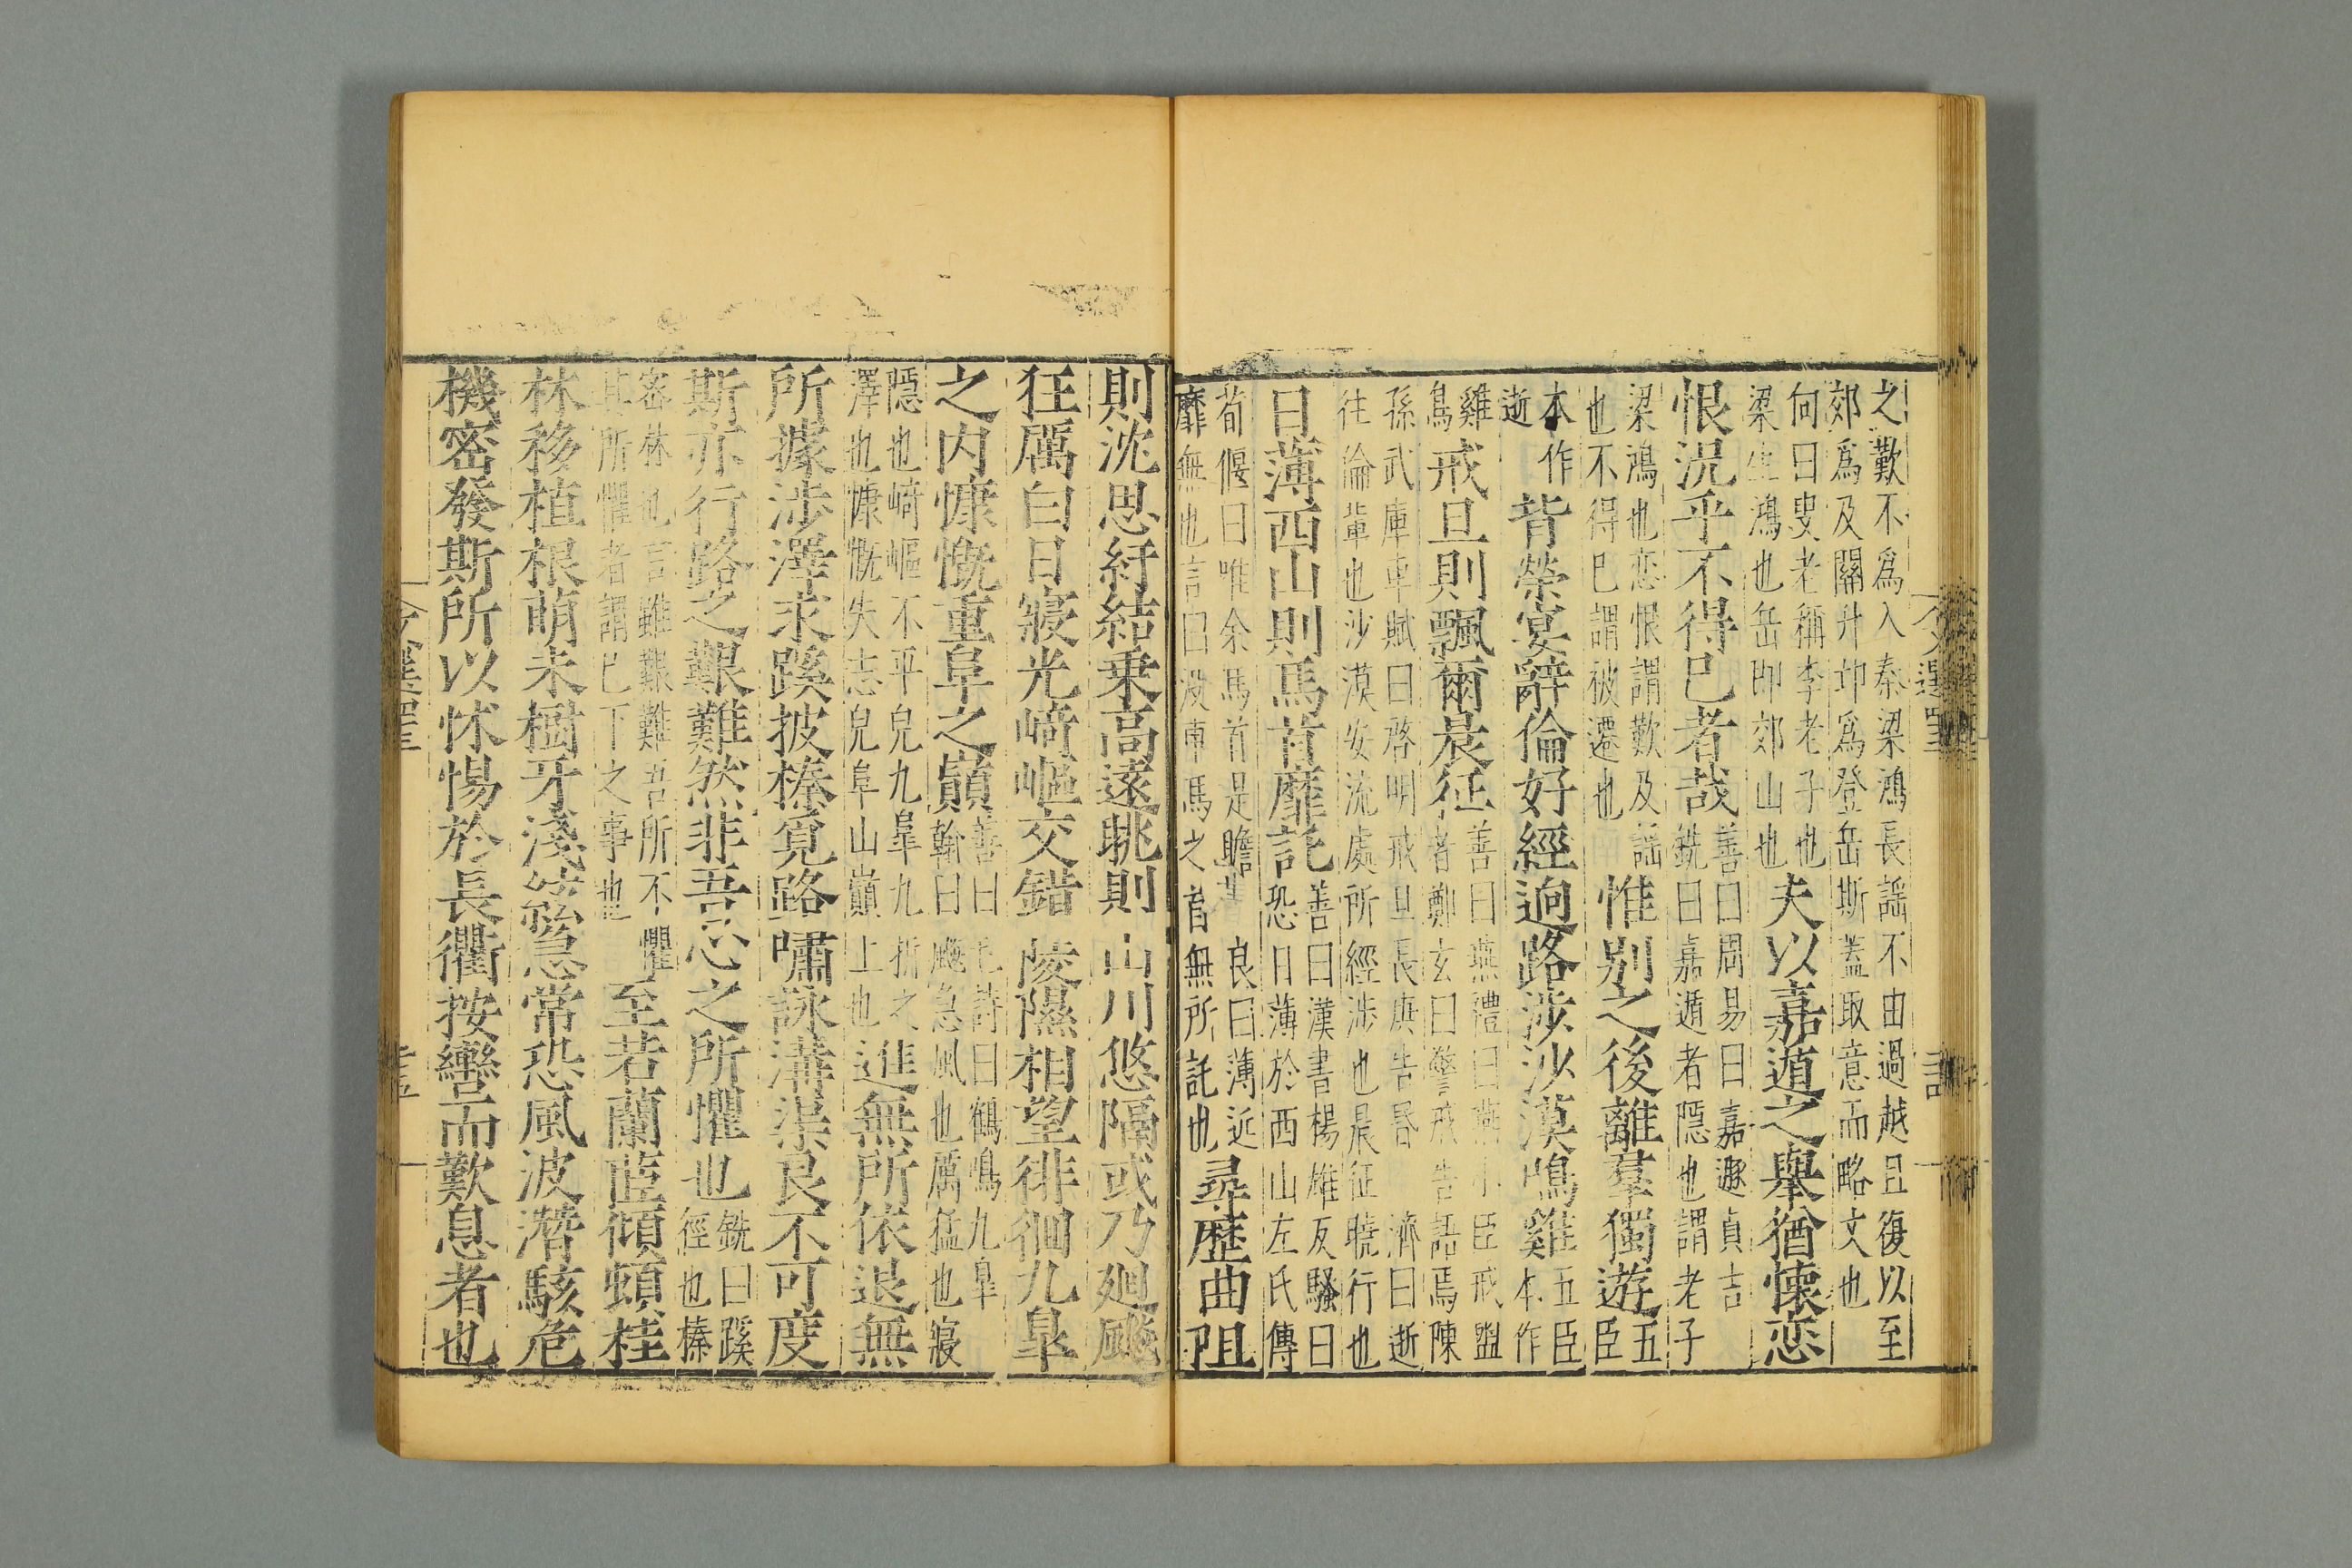 之歎不爲入秦梁鴻長謠不由過越且復以至
郊爲及關升邙爲登岳斯蓋取意而略文也
向曰叟老稱李老老子也
梁生鴻也岳即郊山也
夫以嘉遁之舉猶懷恋
恨況乎不得已者哉
善曰周易曰嘉遯貞吉
銑曰嘉遁者隱也謂老子
梁鴻也恋恨謂歎及謠
也不得已謂被遷也
惟別之後離羣獨遊
五
臣
本作
逝
背榮宴辭倫好經迥路涉沙漠鳴雞
五臣
本作
雞
鳥
戒旦則飄爾晨征
善曰燕禮曰燕小臣戒盥
者鄭玄曰警戒告語焉陳
孫武庫車賦曰啓明戒旦長庚告昏
濟曰逝
往倫輩也沙漠安流處所經涉也晨征曉行也
日薄西山則馬首靡託
善曰漢書楊雄反騷曰
恐日薄於西山左氏傳
荀偃曰唯余馬首是瞻
良曰薄近
靡無也言日沒車馬之首無所託也
尋歷曲阻
則沈思紆結乗高遠眺則山川悠隔或乃廻飇
狂厲白日寢光崎嶇交錯陵隰相望徘徊九臯
之内慷慨重阜之巔
善曰毛詩曰鶴鳴九臯
翰曰飇急風也厲猛也寢
隱也崎嶇不平皃九臯九折之
澤也慷慨失志皃阜山巔上也
進無所依退無
所據涉澤求蹊披榛覓路嘯詠溝渠良不可度
斯亦行路之艱難然非吾心之所懼也
銑曰蹊
徑也榛
密林也言雖艱難吾所不懼
其所懼者謂已下之事也
至若蘭茝傾頓桂
林移植根萌未樹牙淺絃急常恐風波潛駭危
機密發斯所以怵惕於長衢按轡而歎息者也